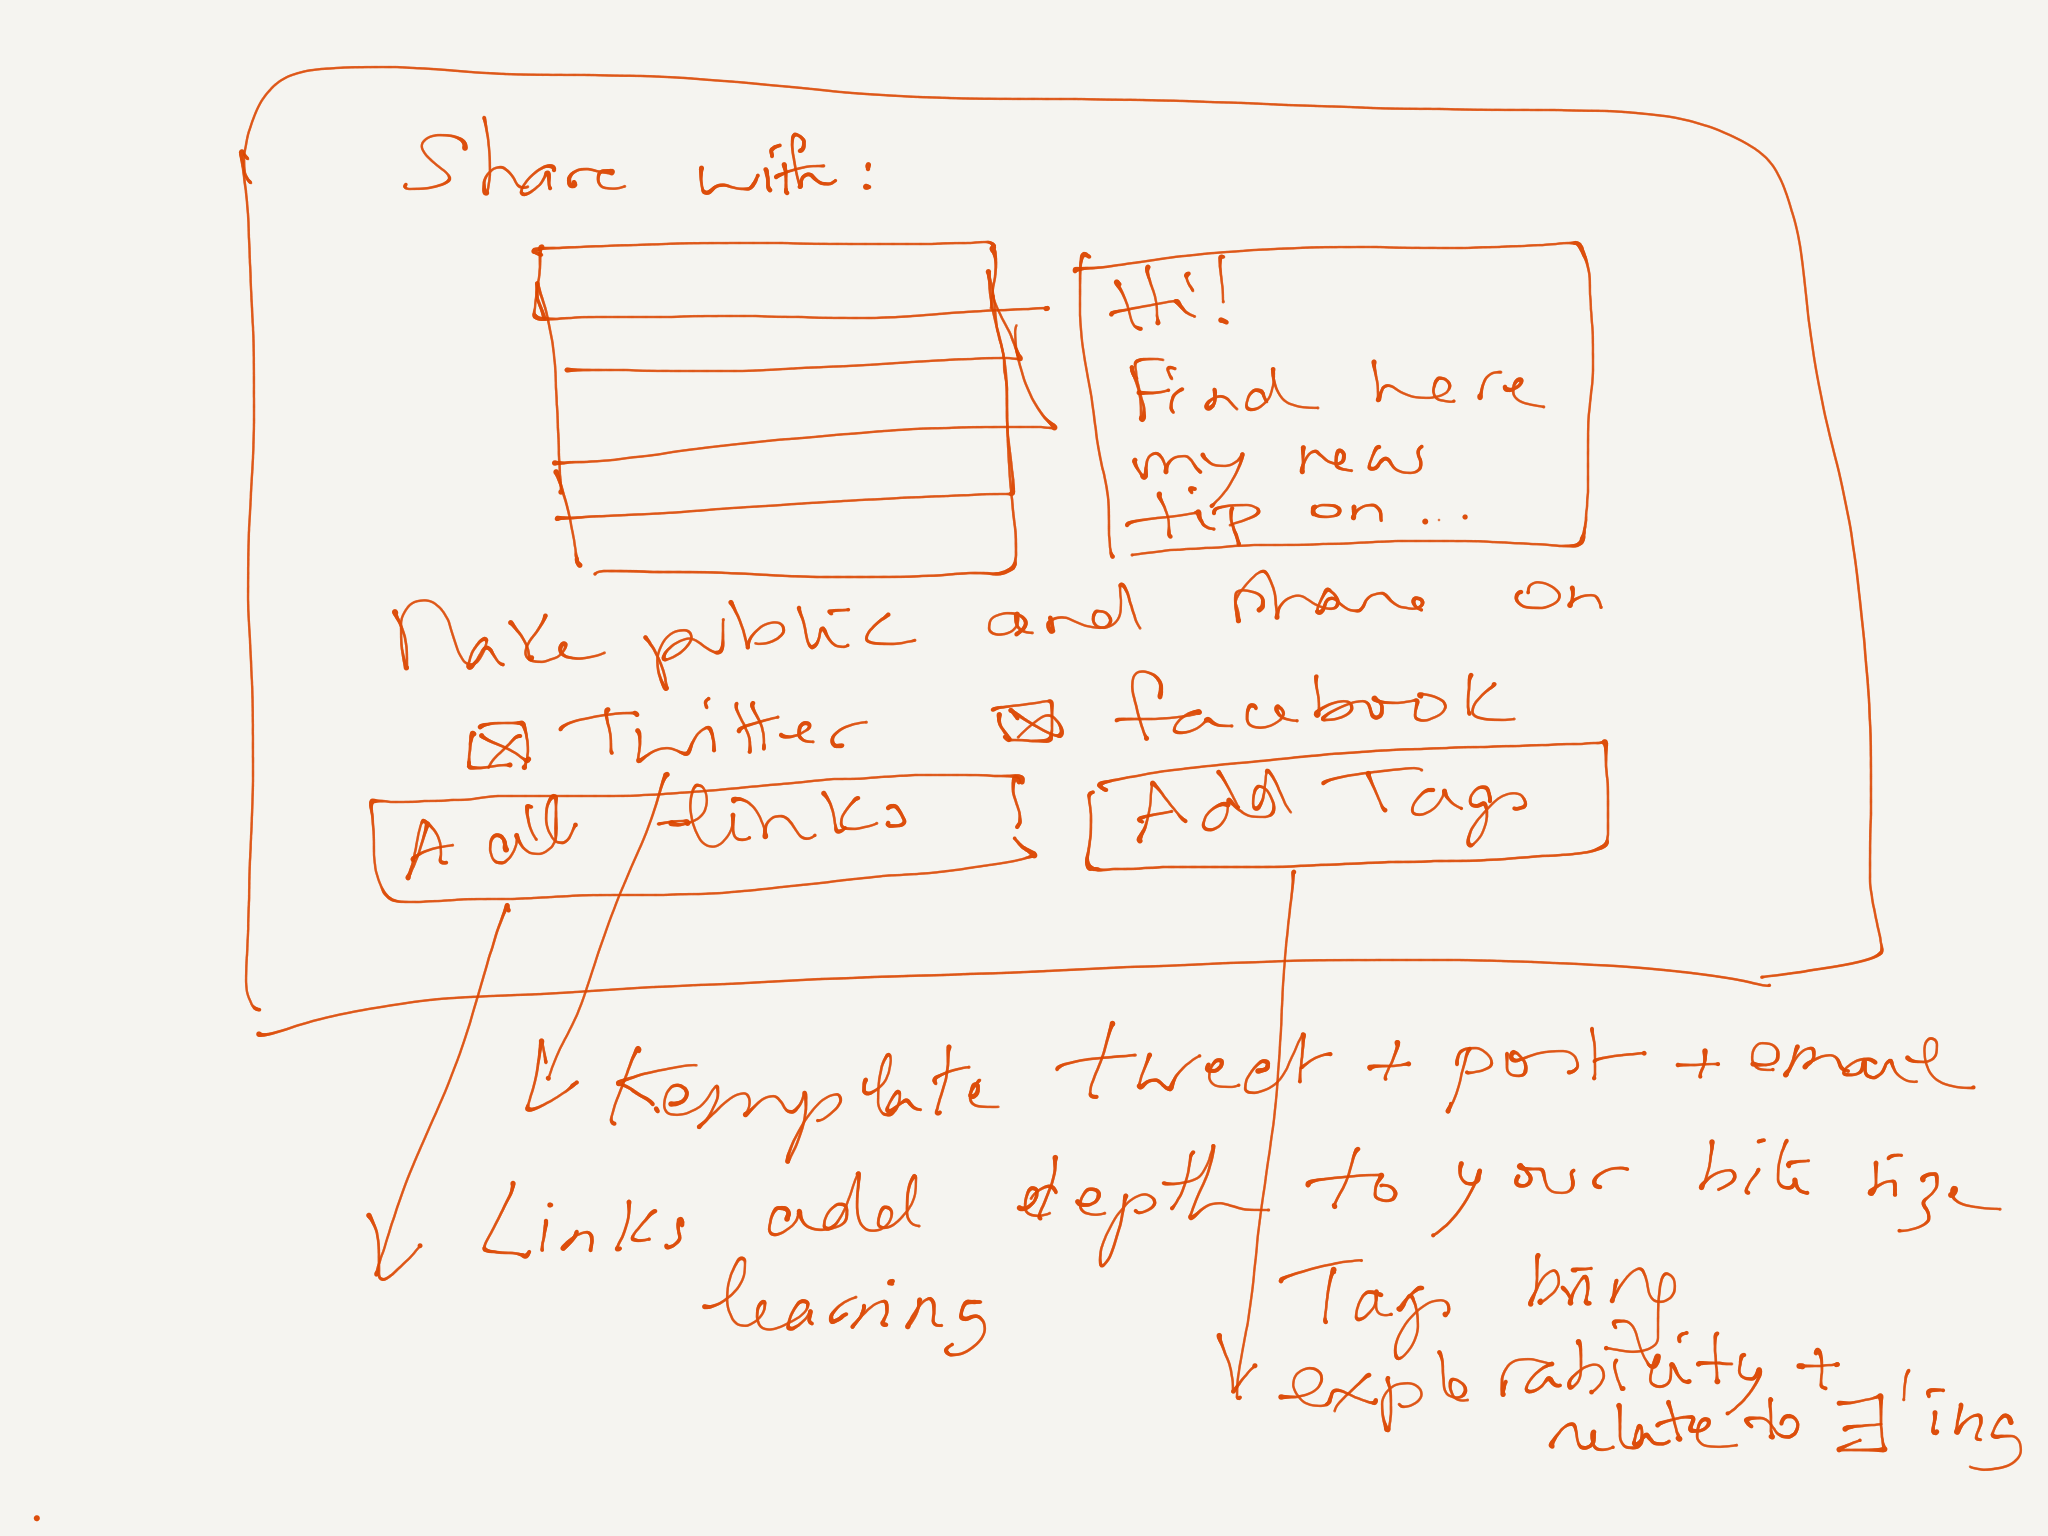 Share with:
Hi!
Find here
my news
tip on...
Make public and share on
Twitter facebook
Add links Add Tags
template tweet + post + email
Links add depth to your bite size
learning
Tags bring
explorability +
relate to ∃'ing